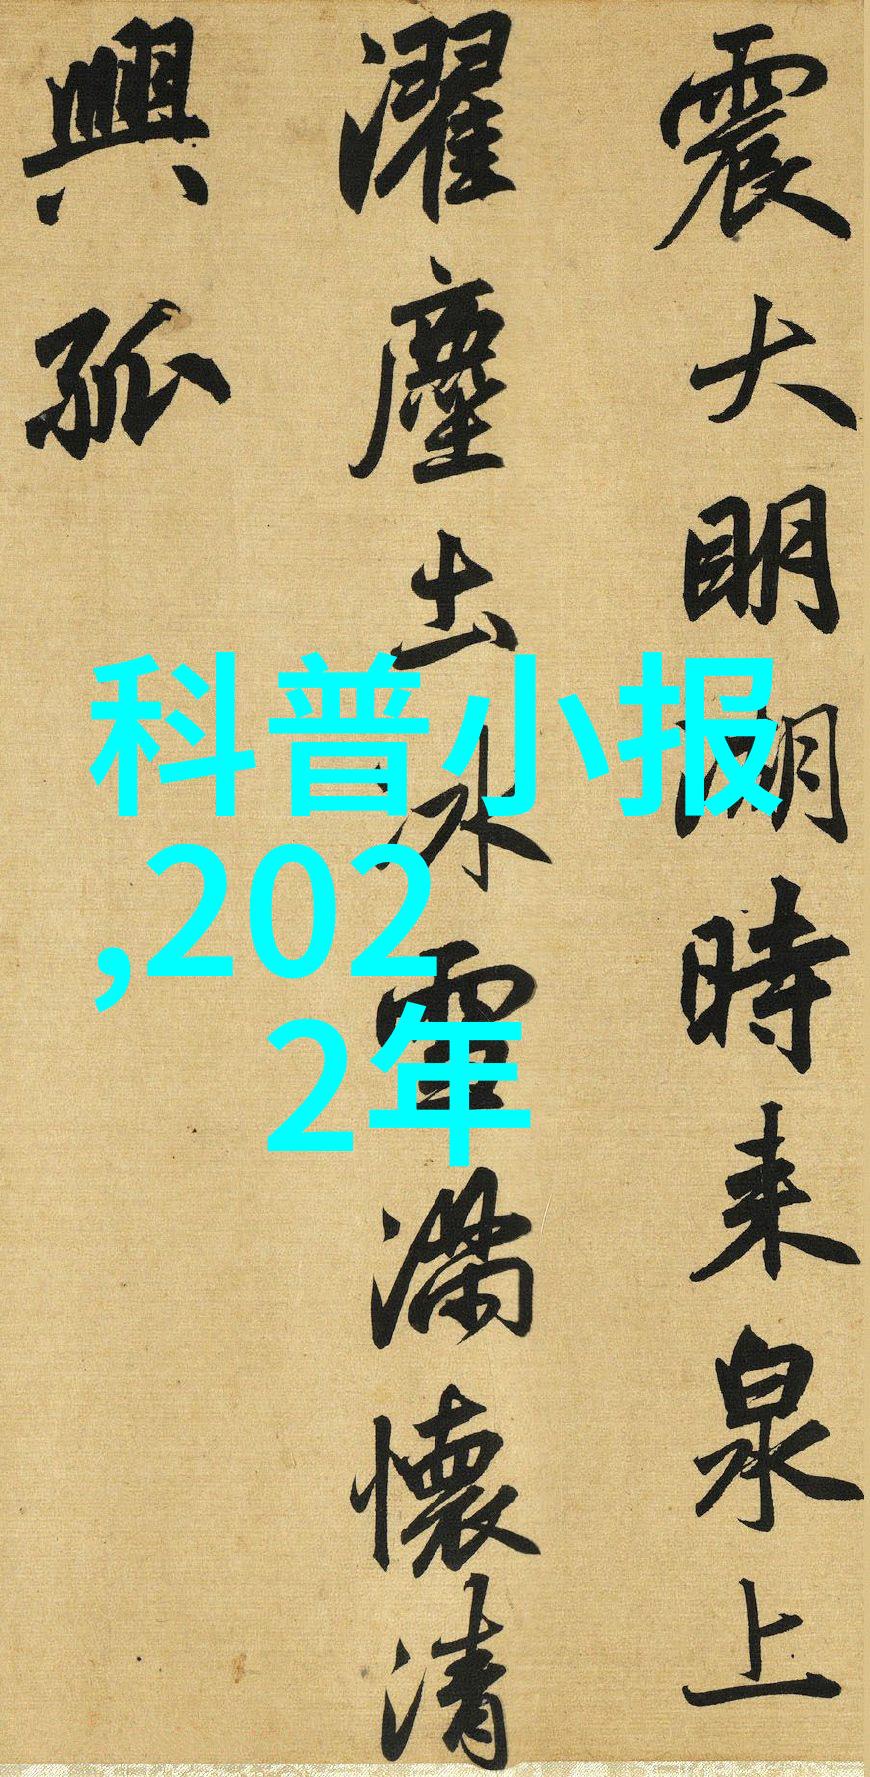 震大明湖時来泉上
濯塵土冰雪滿懷清
興孤
科普小报
,202
2年